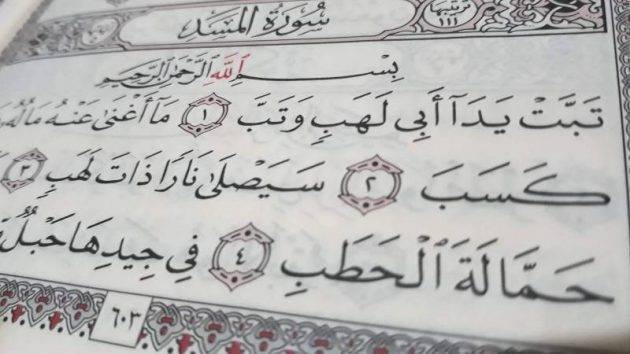 ترتيبها ١١١ سُورَةُ المَسَد
بِسْمِ اللَّهِ الرَّحْمَٰنِ الرَّحِيمِ
تَبَّتْ يَدَآ أَبِي لَهَبٍ وَتَبَّ ١ مَآ أَغْنَىٰ عَنْهُ مَالُهُ
كَسَبَ ٢ سَيَصْلَىٰ نَارًا ذَاتَ لَهَبٍ ٣
حَمَّالَةَ ٱلْحَطَبِ ٤ فِي جِيدِهَا حَبْلٌ
٦٠٣